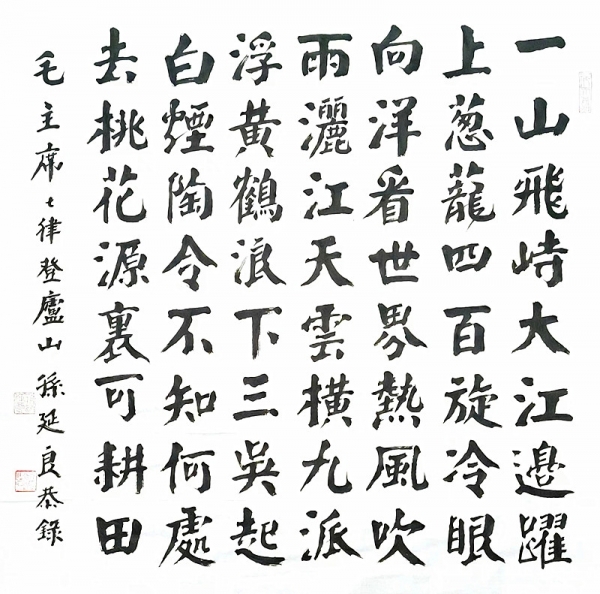 一山飛峙大江邉躍
上葱蘢四百旋冷眼
向洋看世界熱風吹
雨灑江天雲橫九派
浮黄鶴浪下三吳起
白煙陶令不知何處
去桃花源裏可耕田
毛主席七律登廬山孫延良恭錄